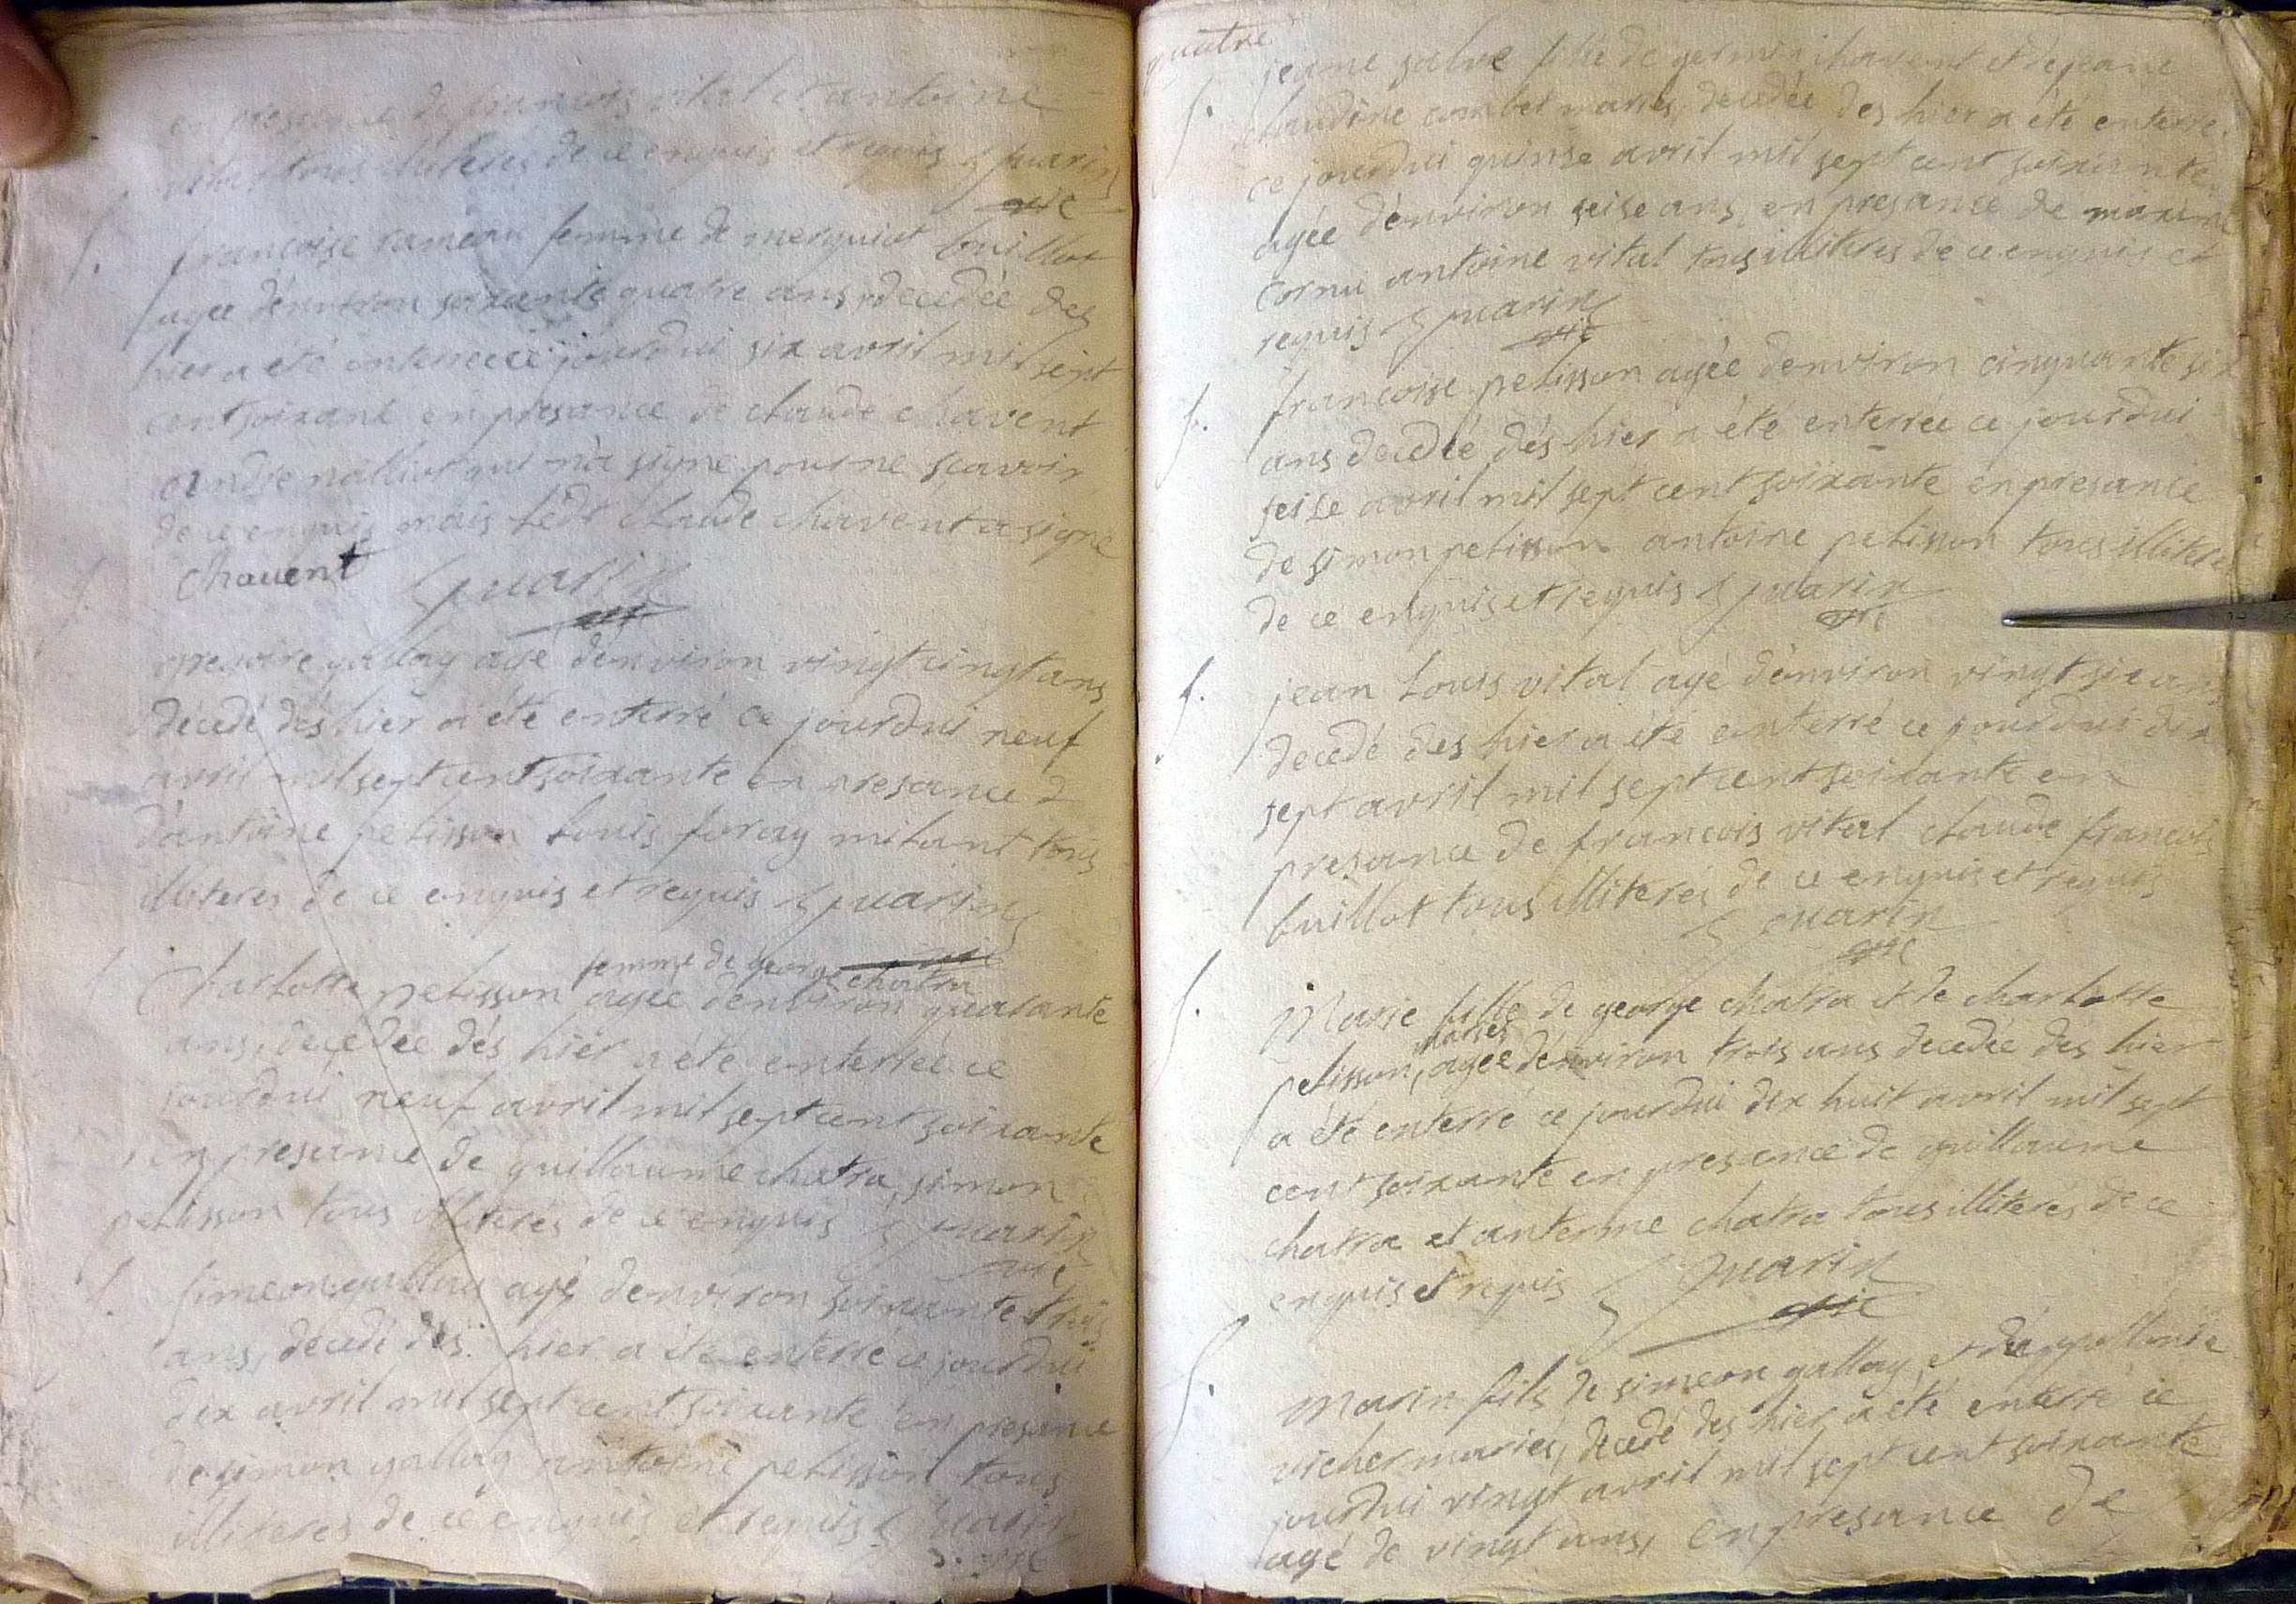 en presence de francois vital et antoine
vital tous illiterés de ce enquis et requis Quarin
vic
francoise rameau femme de buillot
agée d'environ soixante quatre ans decedée des
hier a été enterrée ce jourdui six avril mil sept
cent soixante en presance de claude chavent
andre nalliot qui n'a signe pour ne scavoir
de ce enquis mais ledt claude chavent a signe
chavent Quarin
gallay agé d'environ vingt cinqt ans
decedé dés hier a été enterré ce jourdui neuf
avril mil sept cent soixante en presance
d'antoine petisson Louis foray mitant tous
illiterés de ce enquis et requis Quarin
femme de george chatra
Charlotte petisson agée d'environ quarante
ans, decedée dés hier a été enterrée ce
jourdui neuf avril mil sept cent soixante
en presame de guillaume chatra, simon
petisson tous illiterés de ce enquis Quarin
simeon gallay agé d'environ soixante trois
ans, decedé dés hier a éte enterré ce jourdui
dix avril mil sept cent soixante en presance
de simon gallay antoine petisson tous
illiterés de ce enquis et requis Quarin
quatre
f. jeanne fille de germain chavent et de jeane
claudine combet mariés, decedée des hier a été enterré
ce jourdui quinse avril mil sept cent soixante
agée d'environ seise ans, en presance de
cornu antoine vital tous illiterés de ce enquis et
requis Quarin
f. francoise petisson agée d'environ cinquante six
ans decedée dés hier a été enterrée ce jourdui
seise avril mil sept cent soixante en presance
de simon petisson antoine petisson tous illiteré
de ce enquis et requis Quarin
f. jean Louis vital agé d'environ vingt six ans
decedé des hier a été enterré ce jourdui dix
sept avril mil sept cent soixante en
presance de francois vital claude francois
buillot tous illiterés de ce enquis et requis
Quarin
f. Marie fille de george chatra et de charlotte
mariés
petisson, agée d'environ trois ans decedée des hier
a été enterré ce jourdui dix huit avril mil sept
cent soixante en presence de guillaume
chatra et antenne chatra tous illiterés de ce
enquis et requis Quarin
f. Marin fils de simeon gallay, et de
vicher mariés, decedé des hier a été enterré ce
jourdui vingt avril mil sept cent soixante
agé de vingt ans, en presance de